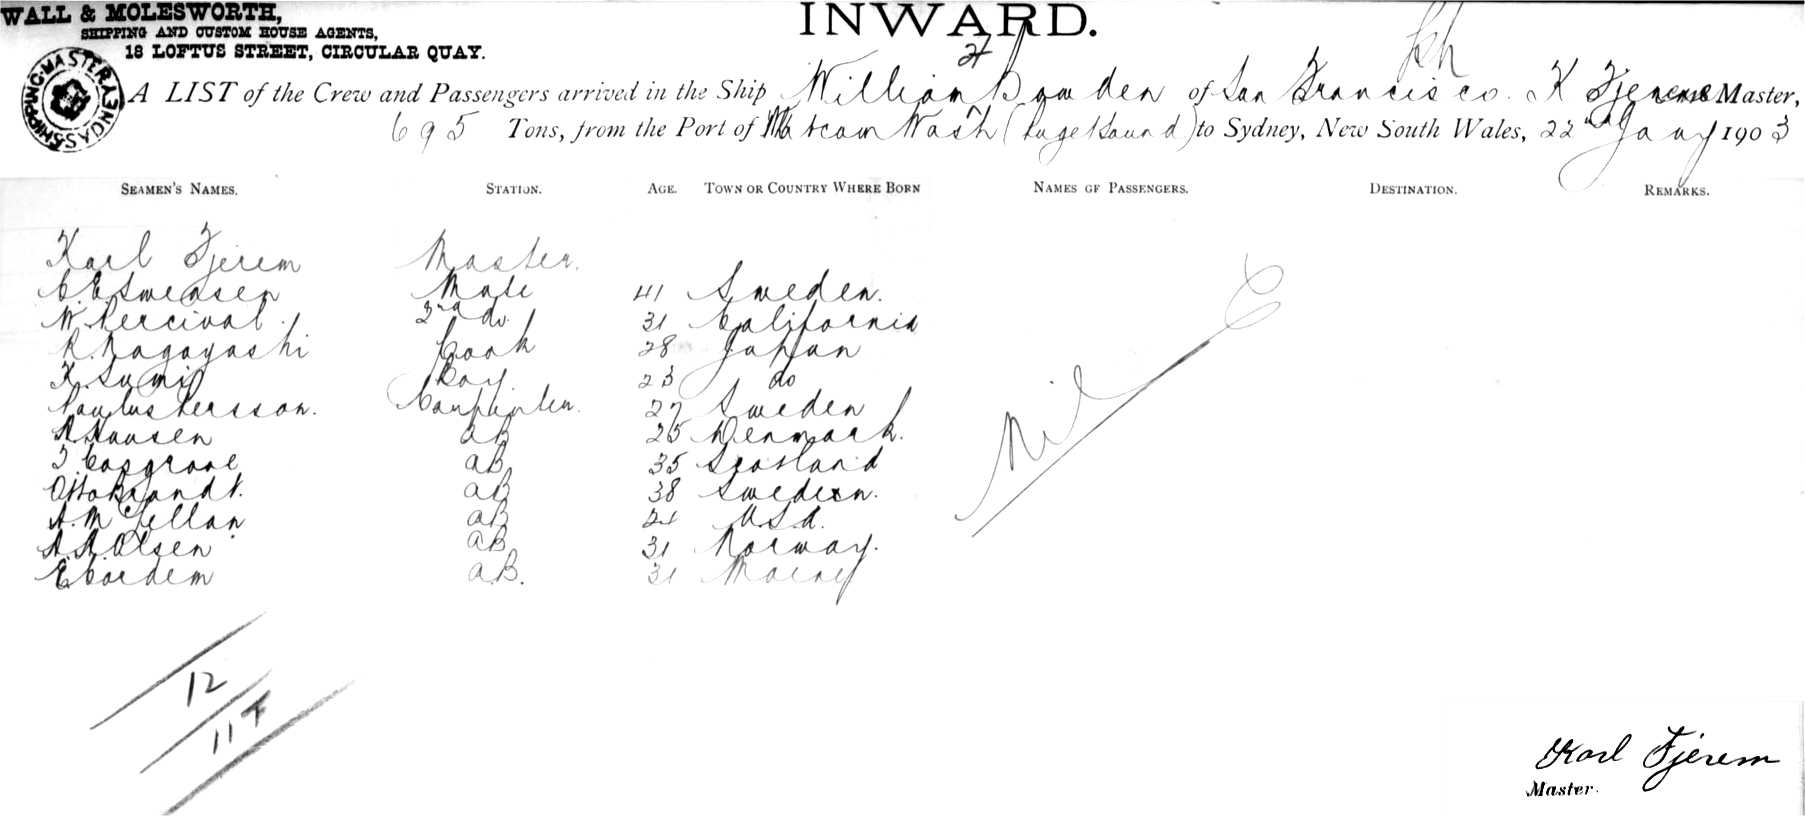 WALL & MOLESWORTH,
SHIPPING AND CUSTOM HOUSE AGENTS,
18 LOFTUS STREET, CIRCULAR QUAY.
SHIPPING MASTER SYDNEY
INWARD.
A LIST of the Crew and Passengers arrived in the Ship William Bowden of San Francisco. K Fjerem Master,
695 Tons, from the Port of Wash (Puget Sound) to Sydney, New South Wales, 22nd Jany 1903
SEAMEN'S NAMES. STATION. AGE. TOWN OR COUNTRY WHERE BORN NAMES OF PASSENGERS. DESTINATION. REMARKS.
Karl Fjerem Master.
C. E Swensen Mate 41 Sweden.
W. Percival. 2nd do. 31 California
K. Nagayashi Cook 28 Japan
K. Sumi Boy. 23 do
Paulus Persson. Carpenter. 27 Sweden
Hansen AB 25 Denmark.
Cosgrove AB 35 Scotland
Otto Brandt. AB 38 Sweden.
A. McLellan AB 21 USA.
A. A Olsen AB 31 Norway.
E. A.B. 31
Nil
12
11
Karl Fjerem
Master.